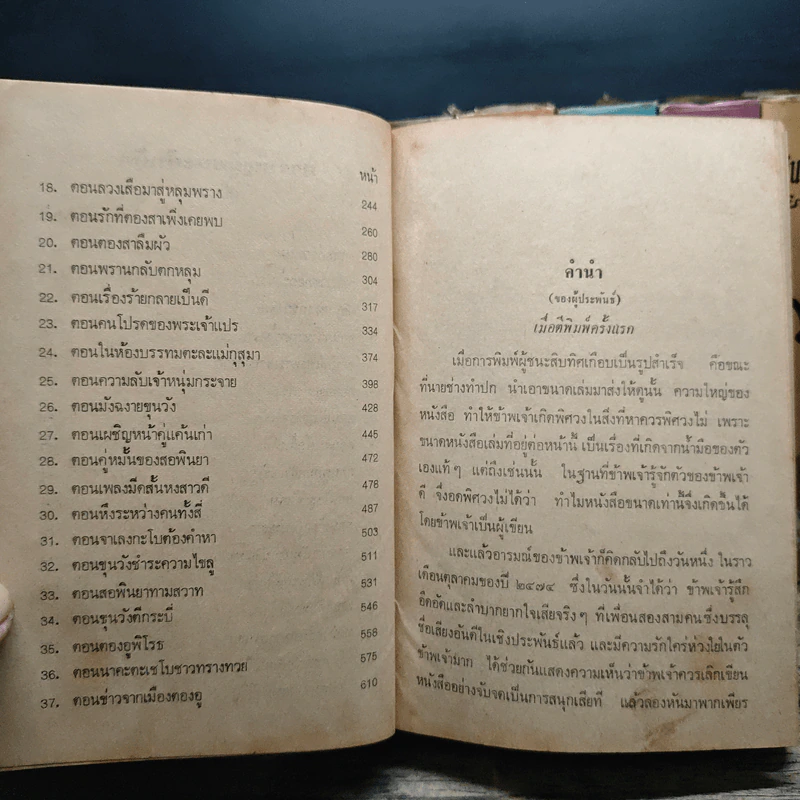 หน้า
18. ตอนลวงเสือมาสู่หลุมพราง 244
19. ตอนรักที่ตองสาเพิ่งเคยพบ 260
20. ตอนตองสาลืมผัว 280
21. ตอนพรานกลับตกหลุม 304
22. ตอนเรื่องร้ายกลายเป็นดี 317
23. ตอนคนโปรดของพระเจ้าแปร 334
24. ตอนในห้องบรรทมตะละแม่กุสุมา 374
25. ตอนความลับเจ้าหนุ่มกระจาย 398
26. ตอนมังฉงายขุนวัง 428
27. ตอนเผชิญหน้าคู่แค้นเก่า 445
28. ตอนคู่หมั้นของสอพินยา 472
29. ตอนเพลงมีดสั้นหงสาวดี 478
30. ตอนหึงระหว่างคนทั้งสี่ 487
31. ตอนจาเลงกะโบต้องคำหา 503
32. ตอนขุนวังชำระความไขลู 511
33. ตอนสอพินยาทามสวาท 531
34. ตอนขุนวังตีกระบี่ 546
35. ตอนตองอูพิโรธ 558
36. ตอนนาคะตะเชโบชาวทรางทวย 575
37. ตอนข่าวจากเมืองตองอู 610
คำนำ
(ของผู้ประพันธ์)
เมื่อตีพิมพ์ครั้งแรก
เมื่อการพิมพ์ผู้ชนะสิบทิศเกือบเป็นรูปสำเร็จ คือขณะ
ที่นายช่างทำปก นำเอาขนาดเล่มมาส่งให้ดูนั้น ความใหญ่ของ
หนังสือ ทำให้ข้าพเจ้าเกิดพิศวงในสิ่งที่หาควรพิศวงไม่ เพราะ
ขนาดหนังสือเล่มที่อยู่ต่อหน้านี้ เป็นเรื่องที่เกิดจากน้ำมือของตัว
เองแท้ ๆ แต่ถึงเช่นนั้น ในฐานที่ข้าพเจ้ารู้จักตัวของข้าพเจ้า
ดี จึ่งอดพิศวงไม่ได้ว่า ทำไมหนังสือขนาดเท่านี้จึ่งเกิดขึ้นได้
โดยข้าพเจ้าเป็นผู้เขียน
และแล้วอารมณ์ของข้าพเจ้าก็คิดกลับไปถึงวันหนึ่ง ในราว
เดือนตุลาคมของปี ๒๔๗๔ ซึ่งในวันนั้นจำได้ว่า ข้าพเจ้ารู้สึก
อึดอัดและลำบากยากใจเสียจริง ๆ ที่เพื่อนสองสามคนซึ่งบรรลุ
ชื่อเสียงอันดีในเชิงประพันธ์แล้ว และมีความรักใคร่ห่วงใยในตัว
ข้าพเจ้ามาก ได้ช่วยกันแสดงความเห็นว่าข้าพเจ้าควรเลิกเขียน
หนังสืออย่างจับจดเป็นการสนุกเสียที แล้วลองหันมาพากเพียร